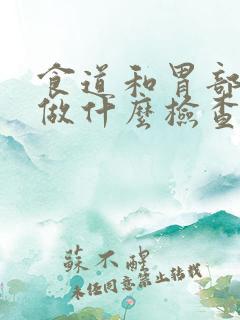 食道和胃部
做什麼檢查
蘇不醒
未經同意禁止轉載